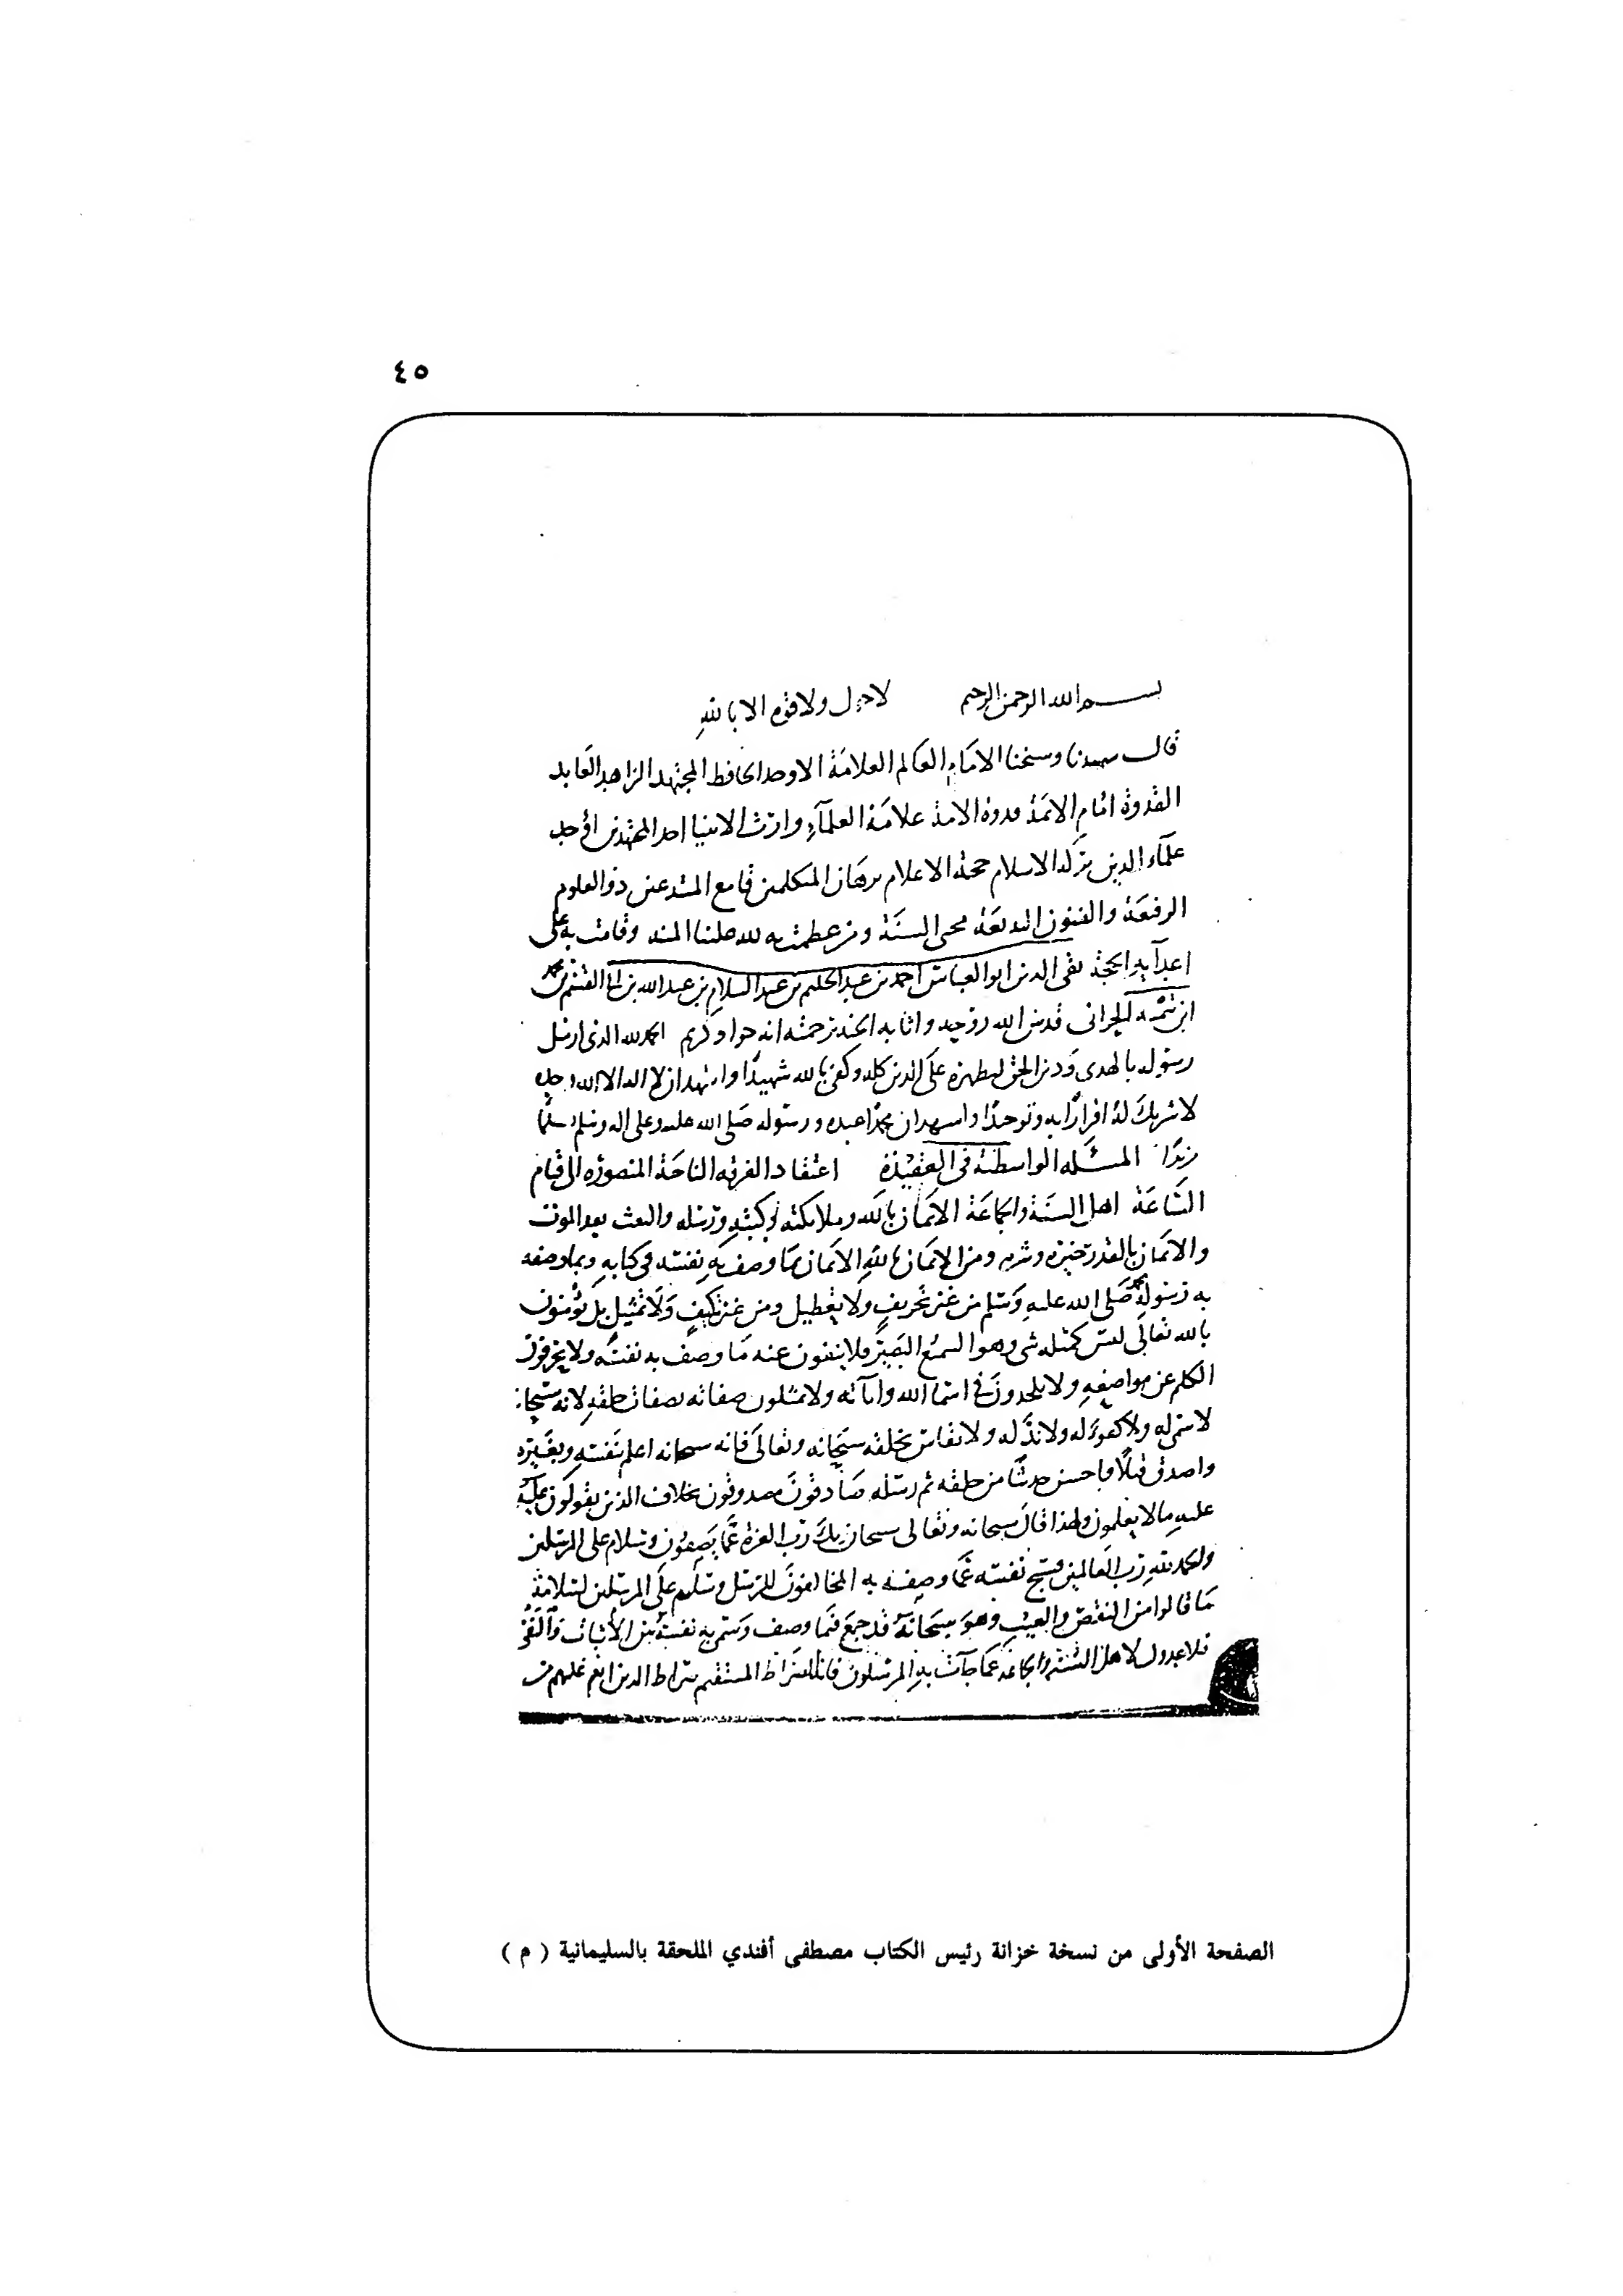 ٤٥
بسم الله الرحمن الرحيم لا حول ولا قوة الا بالله
قال سيدنا وشيخنا الامام العالم العلامة الاوحد الحافظ المجتهد الزاهد العابد
القدوة امام الائمة قدوة الامة علامة العلماء وارث الانبيا احد المجتهدين اوحد
علماء الدين بركة الاسلام حجة الاعلام برهان المتكلمين قامع المبتدعين ذو العلوم
الرفيعة والفنون البديعة محي السنة ومن عظمت به لله علينا المنة وقامت به على
اعدآيه الحجة تقي الدين ابو العباس احمد بن عبد الحليم بن عبد السلام بن عبد الله بن ابي القسم بن محمد
ابن تيميه الحراني قدس الله روحه واثابه الجنة برحمته انه جواد كريم الحمد لله الذي ارسل
رسوله بالهدى ودين الحق ليظهره على الدين كله وكفى بالله شهيدًا واشهد ان لا اله الا الله وحده
لا شريك له اقرارًا به وتوحيدًا واشهد ان محمدًا عبده ورسوله صلى الله عليه وعلى اله وسلم تسليمًا
مزيدًا المسئلة الواسطية في العقيدة اعتقاد الفرقه الناجية المنصوره الى قيام
الساعة اهل السنة والجماعة الايمان بالله وملائكته وكتبه ورسله والبعث بعد الموت
والايمان بالقدر خيره وشره ومن الايمان بالله الايمان بما وصف به نفسه في كتابه وبما وصفه
به رسوله محمد صلى الله عليه وسلم من غير تحريف ولا تعطيل ومن غير تكييف ولا تمثيل بل يؤمنون
بالله تعالى ليس كمثله شي وهو السميع البصير فلا ينفون عنه ما وصف به نفسه ولا يحرفون
الكلم عن مواضعه ولا يلحدون في اسما الله وآياته ولا يمثلون صفاته بصفات خلقه لانه سبحانه
لا سمي له ولا كفوء له ولا ند له ولا يقاس بخلقه سبحانه وتعالى فانه سبحانه اعلم بنفسه وبغيره
واصدق قيلًا واحسن حديثًا من خلقه ثم رسله صادقون مصدوقون بخلاف الذين يقولون
عليه ما لا يعلمون ولهذا قال سبحانه وتعالى سبحان ربك رب العزة عما يصفون وسلام على المرسلين
والحمد لله رب العالمين فسبح نفسه عما وصفه به المخالفون للرسل وسلم على المرسلين لسلامة
ما قالوا من النقص والعيب وهو سبحانه قد جمع فيما وصف وسمى به نفسه بين الاثبات والنفي
فلا عدول لاهل السنة والجماعة عما جآت به المرسلون فانه الصراط المستقيم صراط الذين انعم عليهم من
الصفحة الأولى من نسخة خزانة رئيس الكتاب مصطفى أفندي الملحقة بالسليمانية ( م )